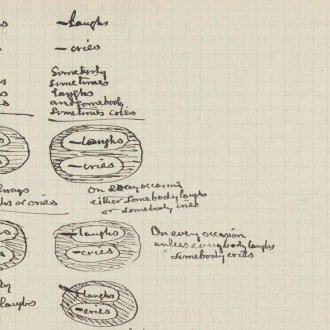 laughs
cries
Somebody
sometimes
laughs
and somebody
sometimes cries
laughs
cries
On every occasion
either somebody laughs
or somebody cries
s or cries
laughs
cries
On every occasion
unless everybody laughs
somebody cries
laughs
laughs
cries